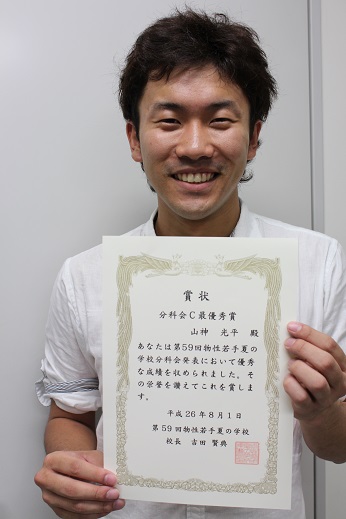 賞状
分科会C最優秀賞
山神 光平 殿
あなたは第59回物性若手夏の
学校分科会発表において優秀
な成績を収められました。そ
の栄誉を讃えてこれを賞しま
す。
平成26年8月1日
第59回物性若手夏の学校
校長 吉田 賢典